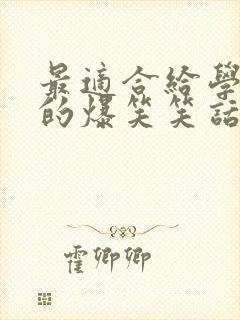 最適合給學
的爆笑笑話
霍卿卿